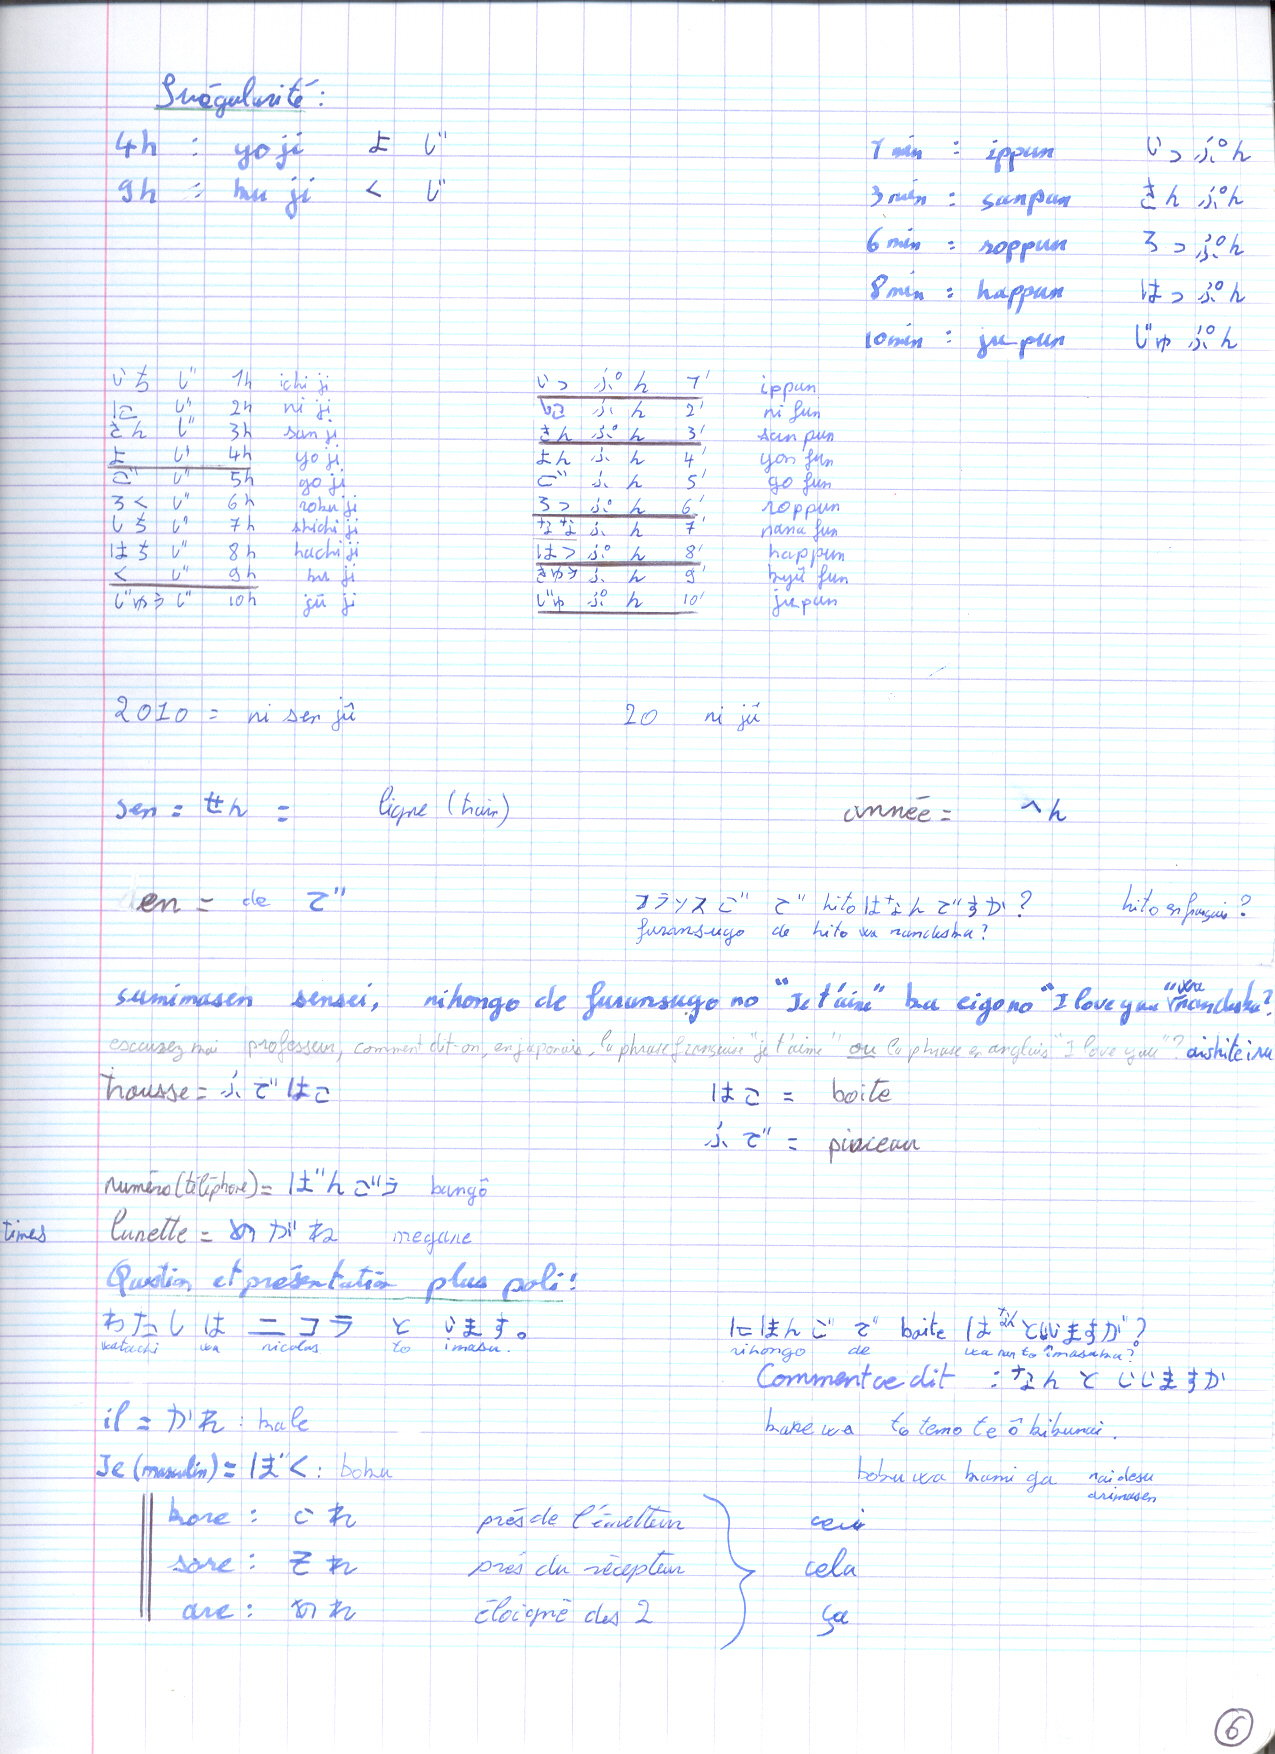 Irrégularité :
4h : yo ji よ じ
9h : ku ji く じ
1 min : ippun いっぷん
3 min : sanpun さんぷん
6 min : roppun ろっぷん
8 min : happun はっぷん
10 min : jupun じゅぷん
いち じ 1h ichi ji いっ ぷ ん 1' ippun
に じ 2h ni ji に ふ ん 2' ni fun
さん じ 3h san ji さん ぷ ん 3' san pun
よ じ 4h yo ji よん ふ ん 4' yon fun
ご じ 5h go ji ご ふ ん 5' go fun
ろく じ 6h roku ji ろっ ぷ ん 6' roppun
しち じ 7h shichi ji なな ふ ん 7' nana fun
はち じ 8h hachi ji はっ ぷ ん 8' happun
く じ 9h ku ji きゅう ふ ん 9' kyū fun
じゅう じ 10h jū ji じゅ ぷ ん 10' jupun
2010 = ni sen jū 20 ni jū
sen = せん = ligne (train) année = へん
en = de で フランスご で hito はなんですか? hito en français ?
furansugo de hito wa nandeska?
sumimasen sensei, nihongo de furansugo no "Je t'aime" ka eigo no "I love you" wa nandeska?
excusez moi professeur, comment dit-on, en japonais, la phrase française "je t'aime" ou la phrase en anglais "I love you"? aishiteiru
trousse = ふではこ はこ = boite
ふで = pinceau
numéro (téléphone) = ばんごう bangô
times lunette = めがね megane
Question et présentation plus poli :
わたし は ニコラ と います。 にほんご で boite は なん といいますか?
watachi wa nicolas to imasu. nihongo de wa nan to imasuka?
Comment ce dit : なん と いいますか
il = かれ : kale kare wa totemo te ô kibunai.
Je (masculin) = ぼく : boku boku wa kami ga nai desu
arimasen
kore : これ près de l'émetteur ceci
sore : それ près du récepteur cela
are : あれ éloigné des 2 ça
6